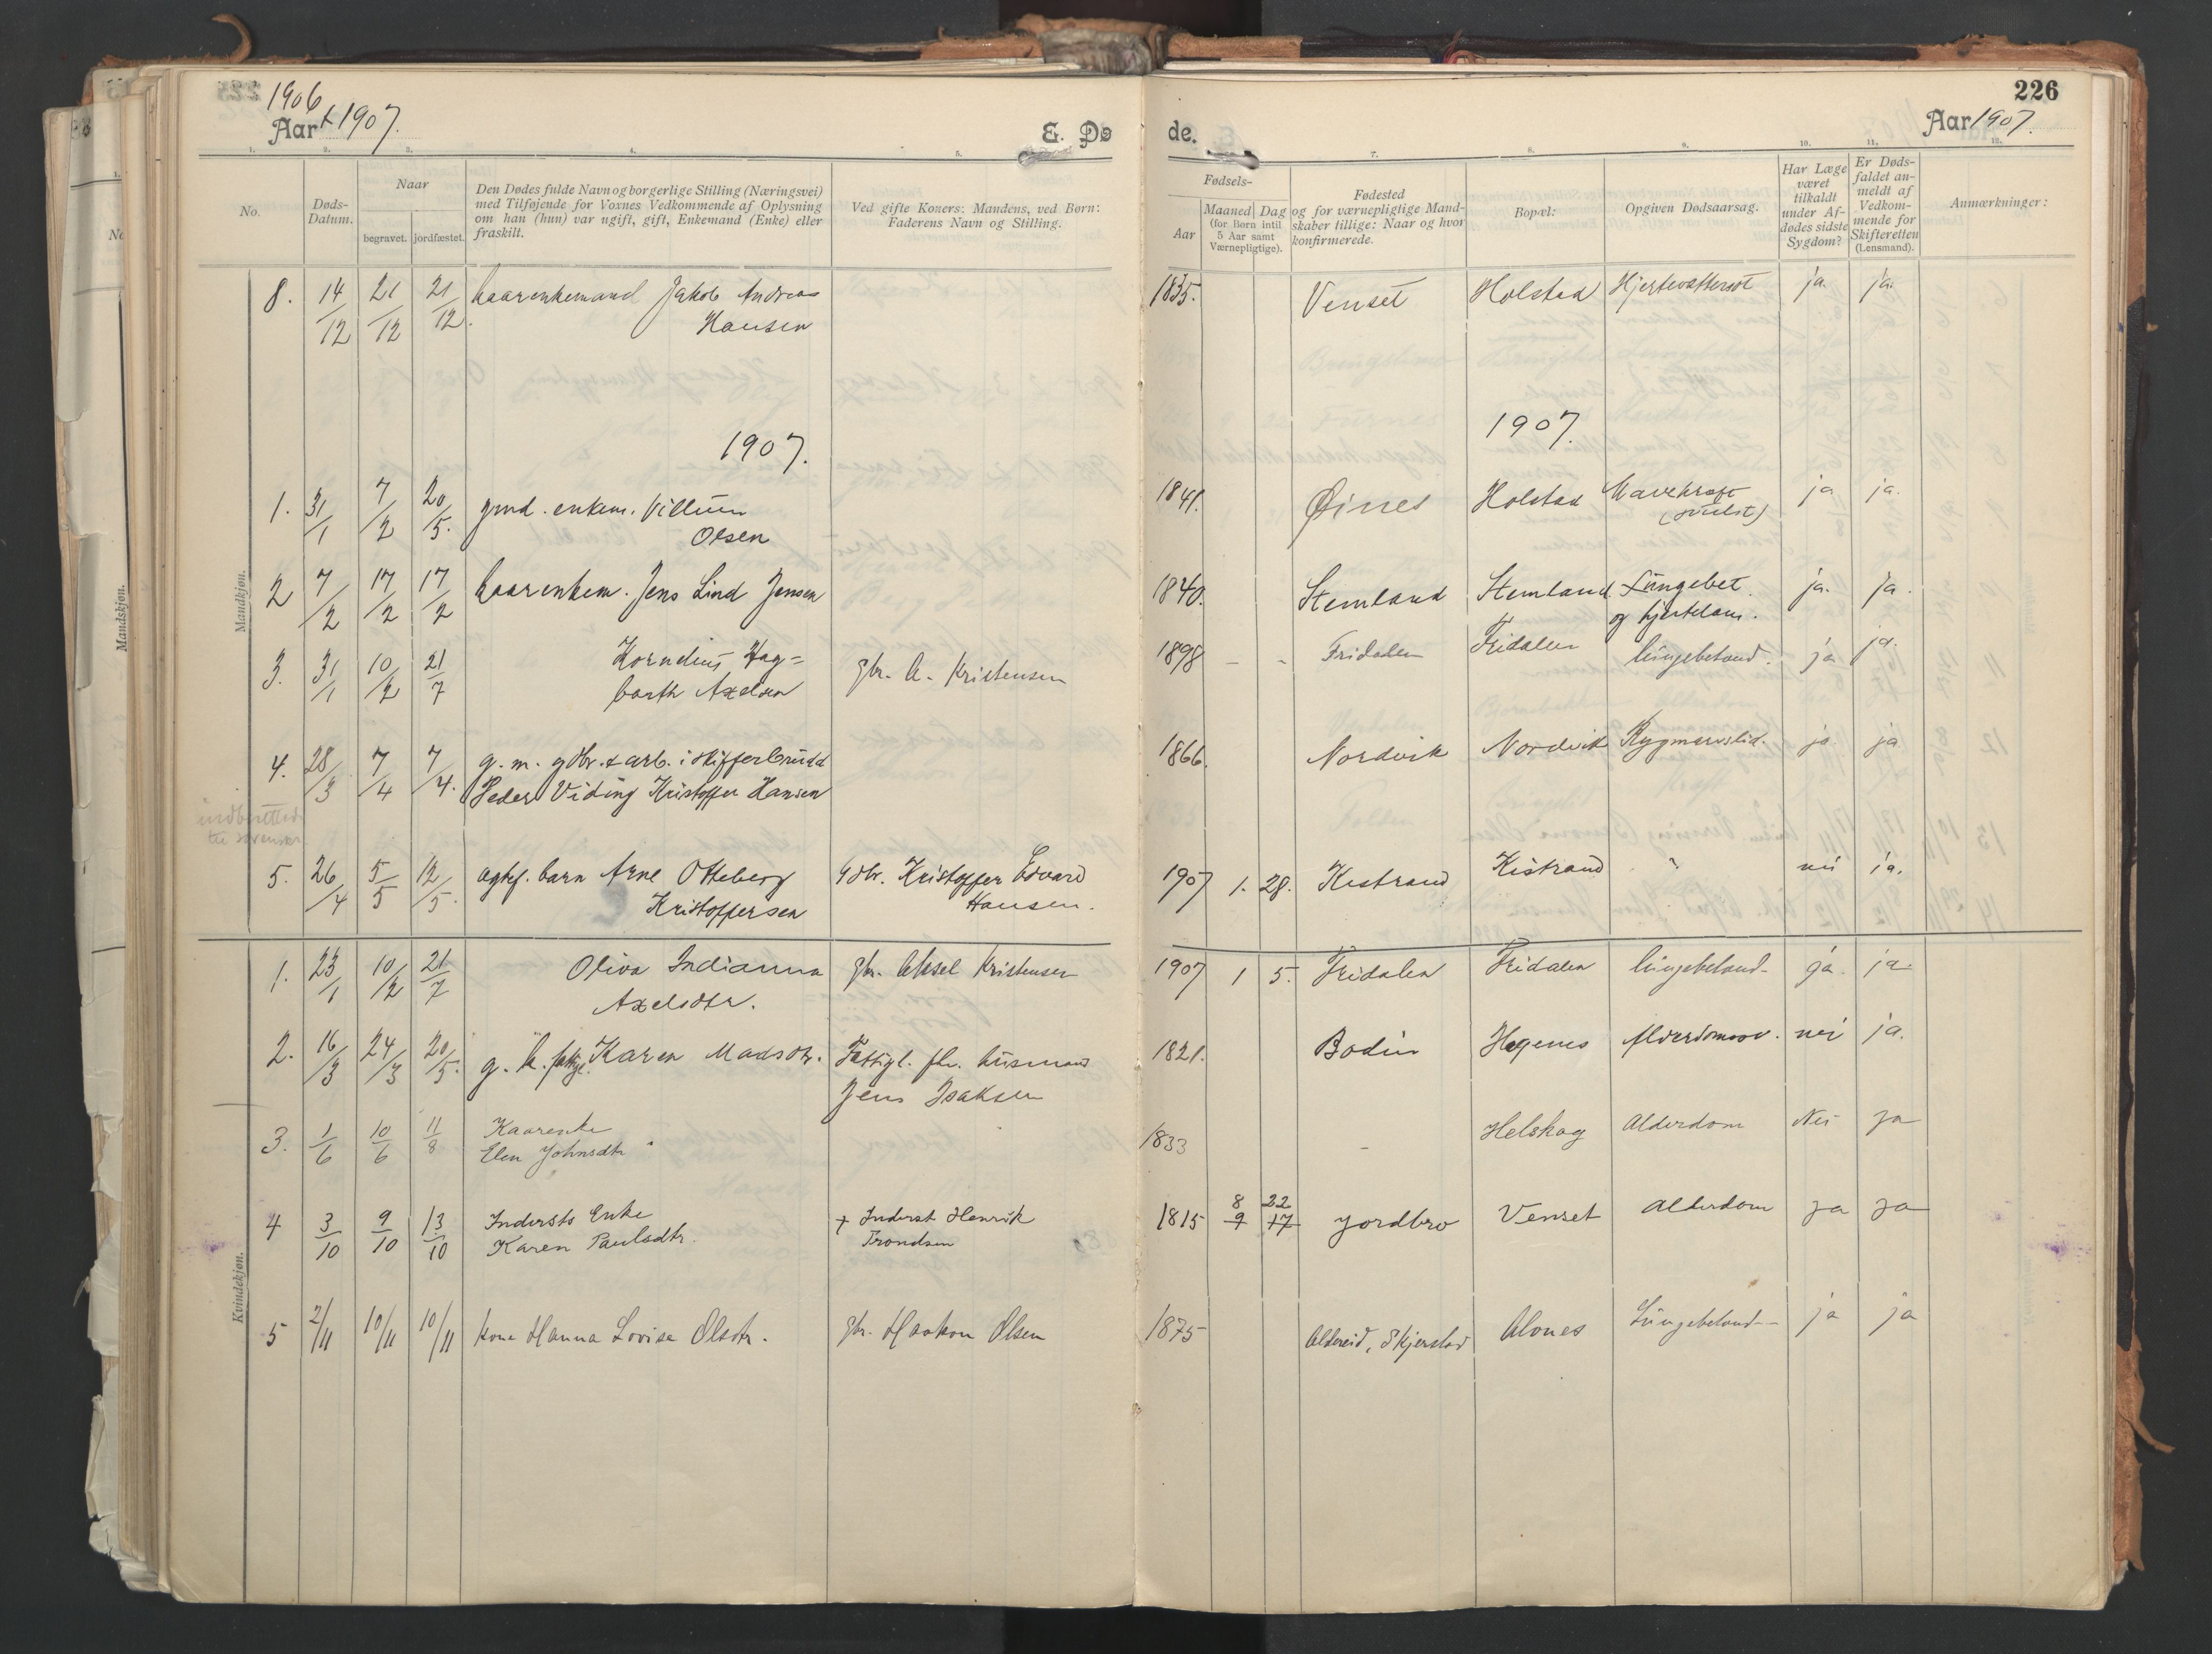 1906
Aar & 1907.
E. Dø
de.
226
Aar 1907.
1. 2. 3. 4. 5.
7. 8. 9. 10. 11. 12.
No.
Døds-
Datum.
Naar
begravet. jordfæstet.
Den Dødes fulde Navn og borgerlige Stilling (Næringsvei)
med Tilføjende for Voxnes Vedkommende af Oplysning
om han (hun) var ugift, gift, Enkemand (Enke) eller
fraskilt.
Ved gifte Koners: Mandens, ved Børn:
Faderens Navn og Stilling.
Fødsels-
Aar
Maaned Dag
(for Børn intil
5 Aar samt
Værnepligtige).
Fødested
og for værnepligtige Mand-
skaber tillige: Naar og hvor
konfirmerede.
Bopæl:
Opgiven Dødsaarsag.
Har Læge
været
tilkaldt
under Af-
dødes sidste
Sygdom?
Er Døds-
faldet an-
meldt af
Vedkom-
mende for
Skifteretten
(Lensmand).
Anmærkninger:
Mandkjøn.
8. 14/12 21/12 21/12. kaarenkemand Jakob Andreas
Hansen
1835. Venset Holstad ja. ja.
1907. 1907.
1. 31/1 7/2 20/5. gmd. enkem. Villum
Olsen
1841. Øines Holstad Mavekræft ja ja.
(svulst)
2 7/2 17/2 17/2 kaarenkem. Jens Lind Jensen
1840. Stemland Stemland Lungebet. ja. ja.
og hjertelam.
3. 31/1 10/2 21/7 Kornelius Hag=
barth Axelsen
gbr. A. Kristensen
1898 - - Fridalen Fridalen lungebetænd. ja ja.
4. 28/3 7/4 7/4. g. m. gdbr. & arb. i skifferbrudd
Peder Viding Kristoffer Hansen
1866. Nordvik Nordvik Rygmarvslid. ja. ja
indberettet
til sorenskr.
5. 26/4 5/5 12/5. ægtef. barn Arne Otteberg
Kristoffersen
Gdbr. Kristoffer Edvard
Hansen.
1907 1. 28. Kistrand Kistrand ? nei ja.
Kvindekjøn.
1. 23/1 10/2 21/7 Oliva Indianna
Axelsdtr.
gbr. Aksel Kristensen
1907 1 5. Fridalen Fridalen lungebetænd. ja. ja.
2. 16/3 24/3 20/5. g. k. fattigl. Karen Madsdtr.
Fattigl. fhv. husmand
Jens Isaksen
1821. Bodin Hegenes Alderdomssv. nei ja.
3. 1/6 10/6 11/8 Kaarenke
Elen Johnsdtr
1833 - Helskog Alderdom Nei ja
4 3/10 9/10 13/10 Indersts Enke
Karen Paulsdtr.
+ Inderst Henrik
Trondsen
8 22
1815 9 17 Jordbro Venset Alderdom ja ja
5 2/11 10/11 10/11 kone Hanna Lovise Olsdtr.
gbr. Haakon Olsen
1875 Aldereid, Skjerstad Alones Lungebetænd. ja ja
Mandskjøn.